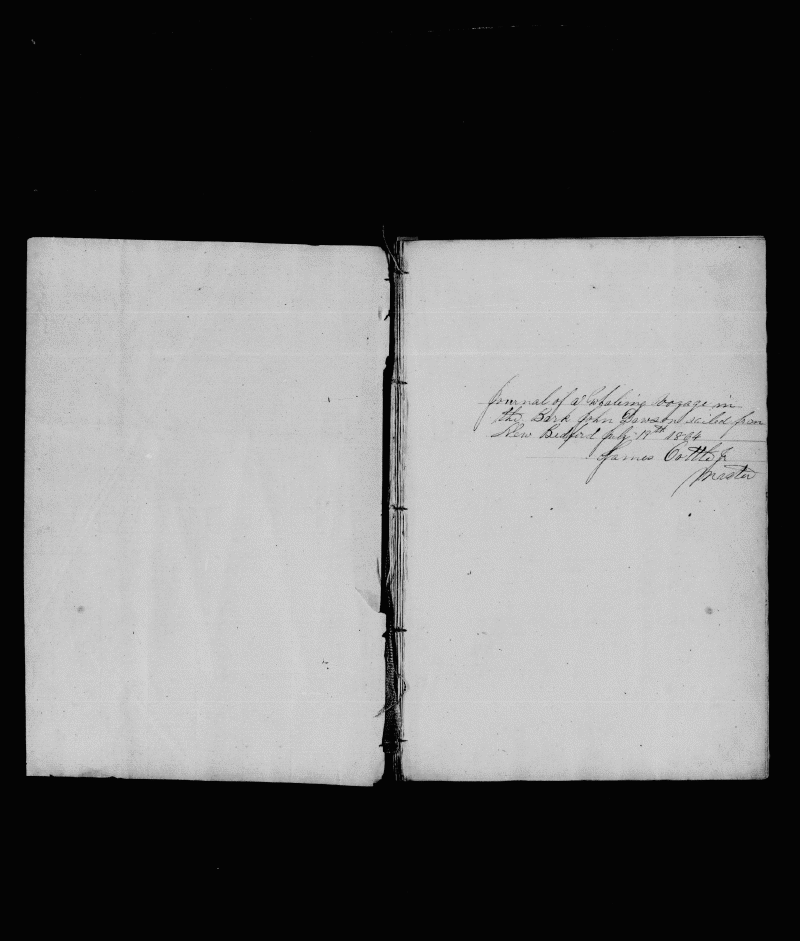 Journal of a Whaling vogage in
the Bark John Dawson sailed from
New Bedford July 19th 1864
James Cottle Jr
Master